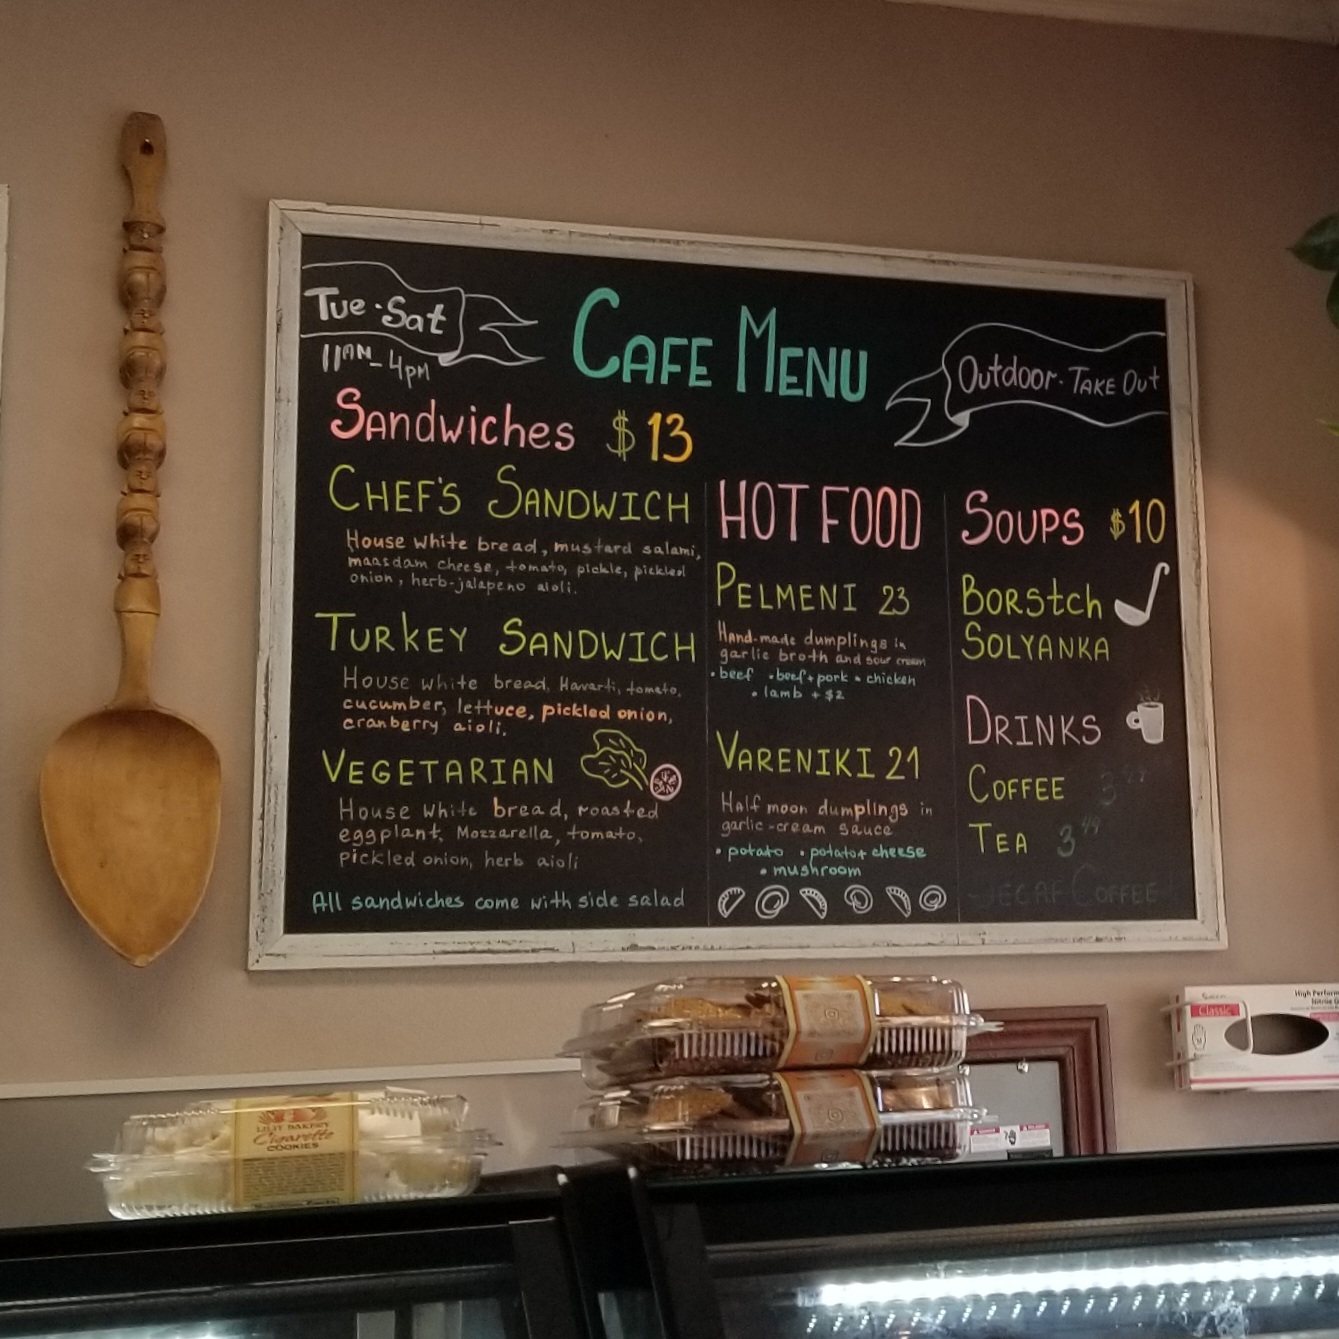 Tue·Sat
11AM-4PM
CAFE MENU
Outdoor·TAKE Out
Sandwiches $13
CHEF'S SANDWICH
House white bread, mustard salami,
maasdam cheese, tomato, pickle, pickled
onion, herb-jalapeno aioli.
TURKEY SANDWICH
House white bread, Havarti, tomato,
cucumber, lettuce, pickled onion,
cranberry aioli.
VEGETARIAN
House white bread, roasted
eggplant, Mozzarella, tomato,
pickled onion, herb aioli
All sandwiches come with side salad
HOT FOOD
PELMENI 23
Hand-made dumplings in
garlic broth and sour cream
•beef •beef+pork • chicken
• lamb + $2
VARENIKI 21
Half moon dumplings in
garlic-cream sauce
• potato • potato+cheese
• mushroom
SOUPS $10
BORStch
SOLYANKA
DRINKS
COFFEE 3
TEA 3 49
DECAF COFFEE
Cigarette
COOKIES
Classic
High Perform